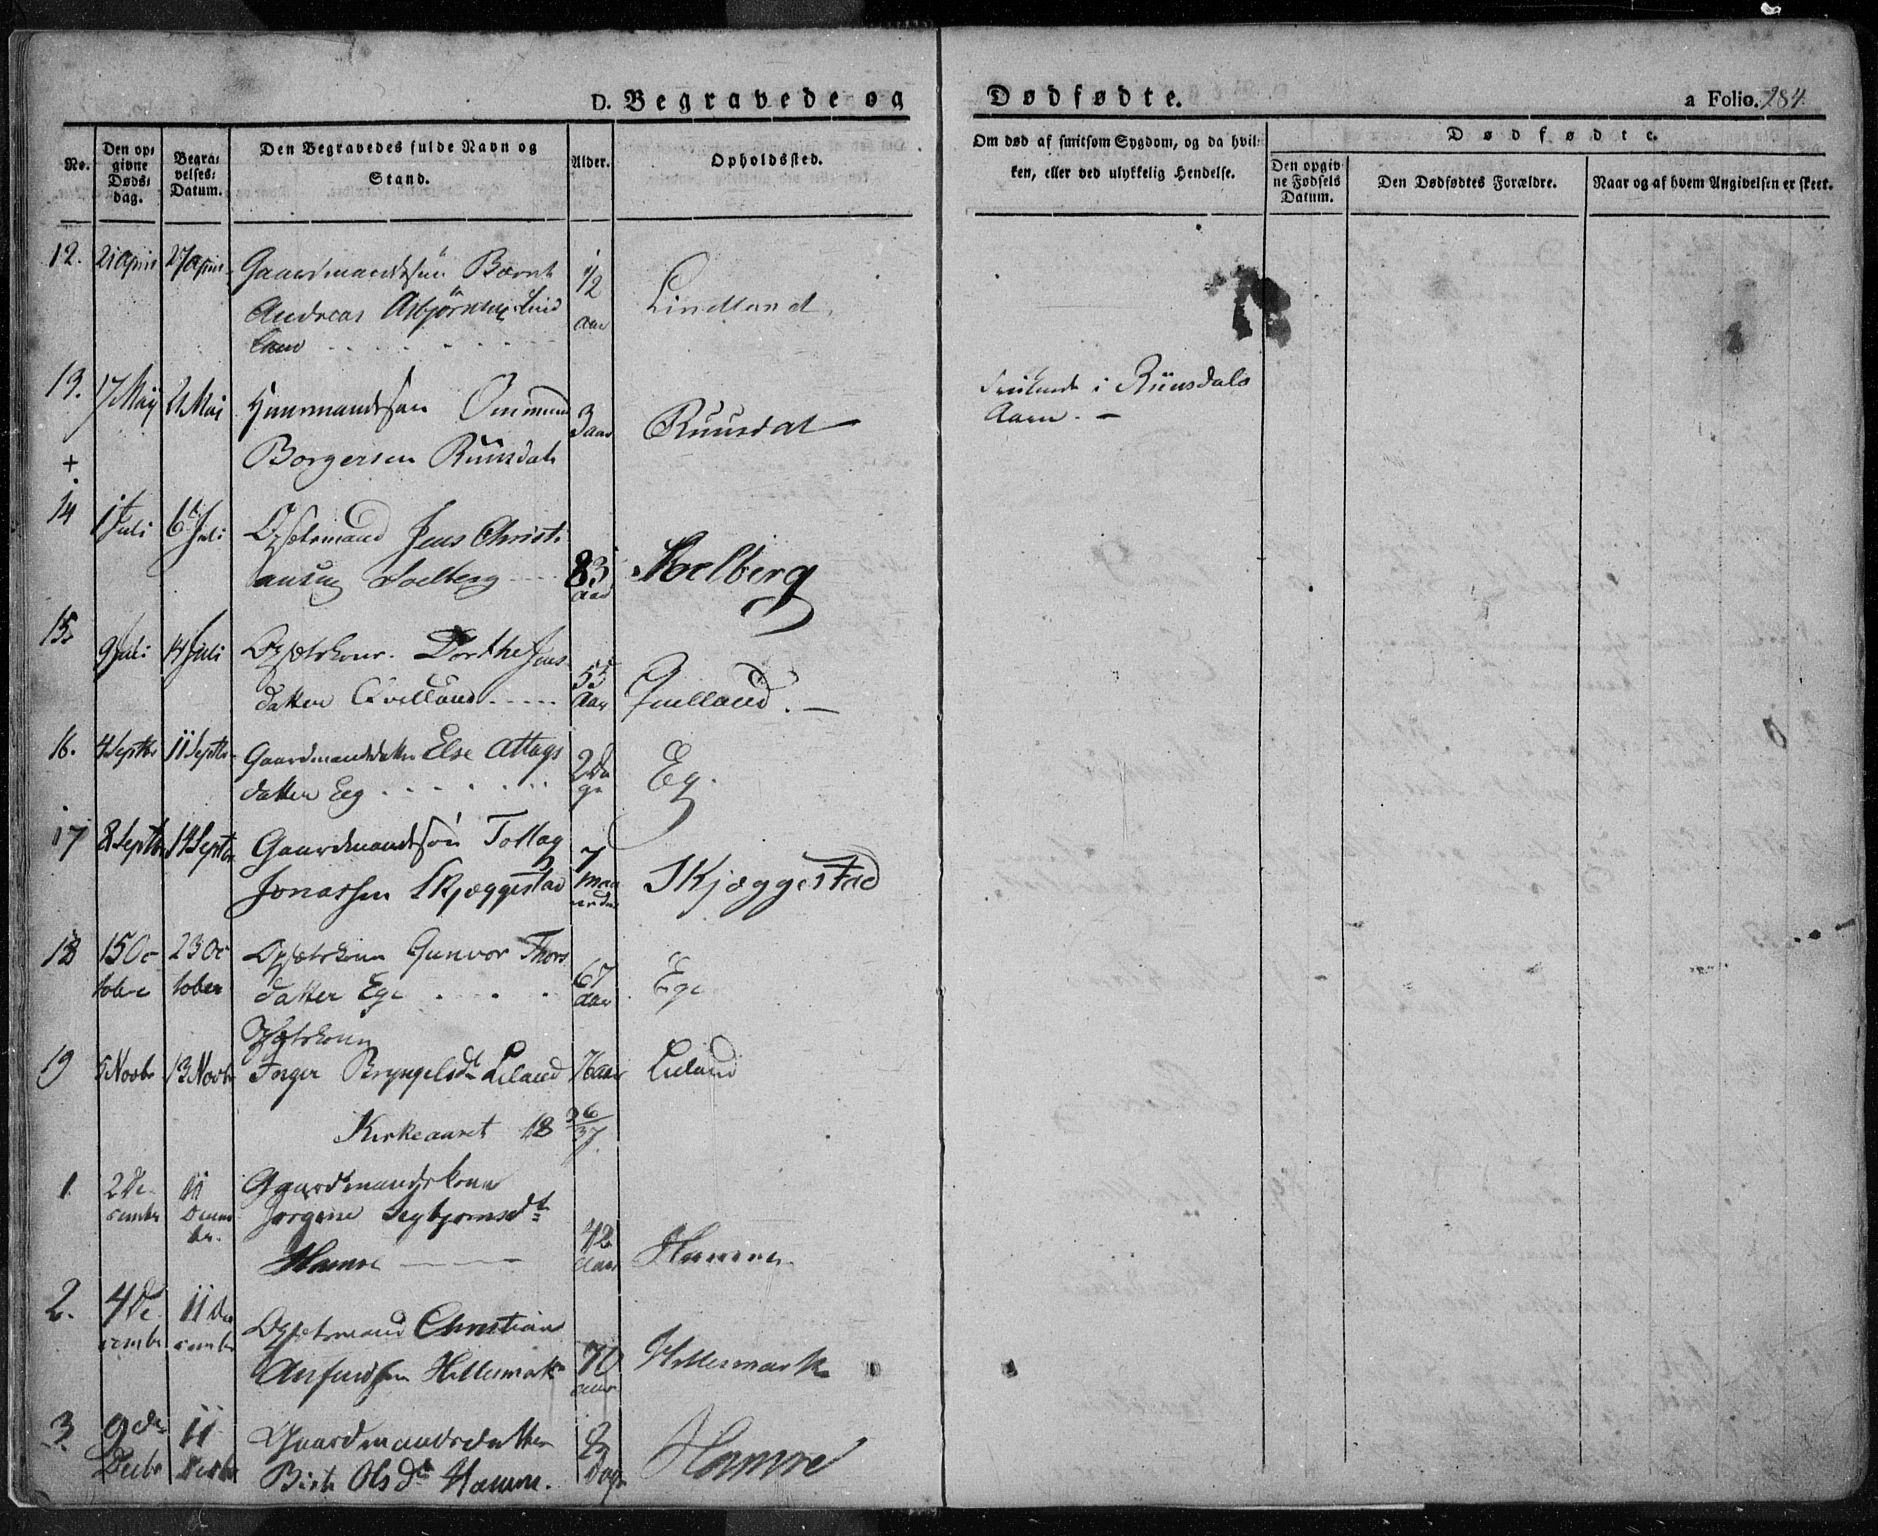 D. Begravede og Dødfødte. a Folio. 284.
No.
Den opgivne Døds-dag.
Begravelses-Datum.
Den Begravedes fulde Navn og Stand.
Alder.
Opholdssted.
Om død af smitsom Sygdom, og da hvilken, eller ved ulykkelig Hendelse.
Dødfødte.
Den opgivne Fødsels Datum.
Den Dødfødtes Forældre.
Naar og af hvem Angivelsen er skeet.
12. 21 April 27 April Gaardmandssøn Bærnt
Andreas Asbjørnsen Lind
land 1/2 Aar Lindland
13. 17 Maij 21 Maj Huusmandssøn Ommund
Borgersen Ruusdal 3 Aar Ruusdal
i Ruusdals
Aaen. —
+
14 1 Juli 6 Juli Opsetsmand Jens Christi
ansen Soelberg 83 Aar Soelberg
15. 9 Juli 14 Juli Opsetskone Dorthe Jens
datter Qvelland 55 Aar Qvelland. —
16. 4 Septbr 11 Septbr Gaardmandsdatter Else Attags
datter Eeg 2 Dage Eg.
17 8 Septbr 14 Septbr Gaardmandssøn Tollag
Jonassen Skjæggestad 7 Maaneder Skjæggestad
18 15 October 23 October Opsætskone Gunvor Thors
datter Ege 67 Aar Ege
Opsætskone
19 5 Novbr 13 Novbr Inger Bryngelsdt Leland 76 Aar Leland
Kirkeaaret 18 36/37.
1. 2 December 11 December Gaardmandskone
Jørgine Segbjørnsdt
Hamre 42 Aar Hamre.
2. 4 December 11 December Opsetsmand Christian
Anfindsen Hillesmark 70 Aar Hillesmark
3. 9de Decbr 11 Decbr Gaardmandsdatter
Birte Olsdt Hamre. 8 Dage Hamre